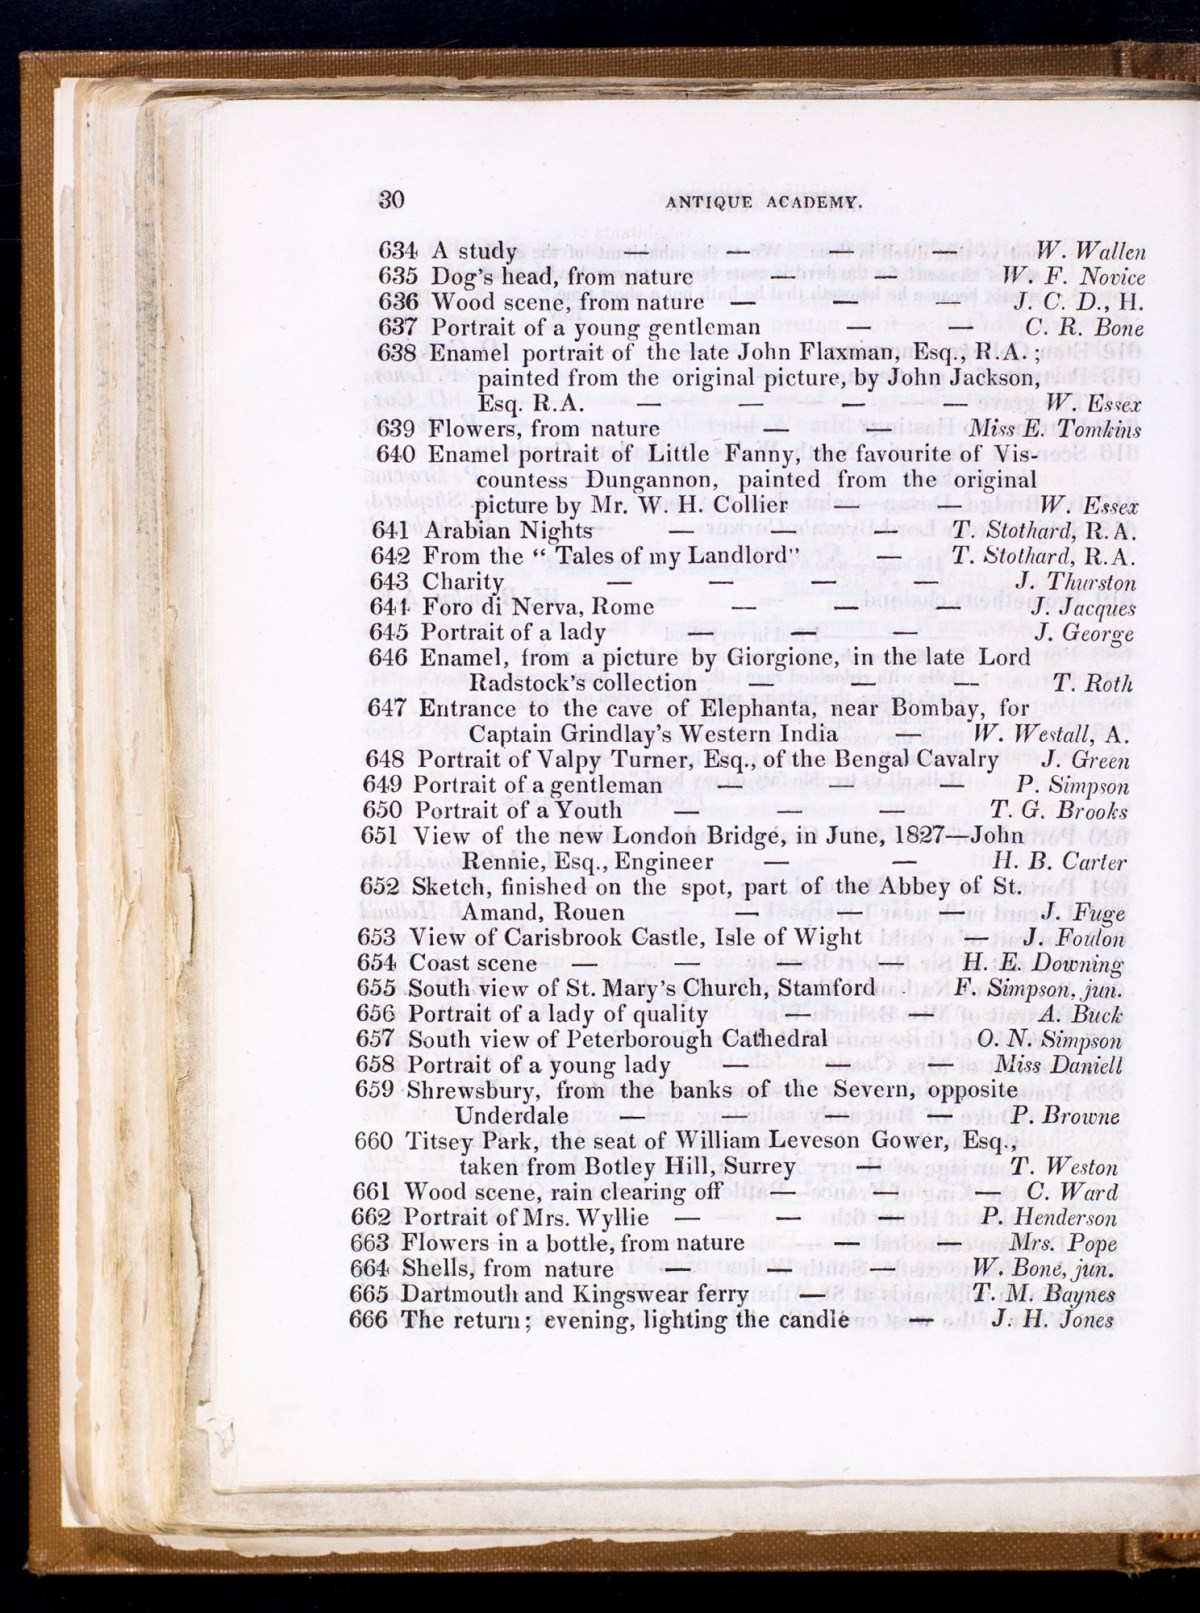 30 ANTIQUE ACADEMY.
634 A study — — — — W. Wallen
635 Dog's head, from nature — — W. F. Novice
636 Wood scene, from nature — — — J. C. D., H.
637 Portrait of a young gentleman — — C. R. Bone
638 Enamel portrait of the late John Flaxman, Esq., R.A.;
painted from the original picture, by John Jackson,
Esq. R.A. — — — — W. Essex
639 Flowers, from nature — — Miss E. Tomkins
640 Enamel portrait of Little Fanny, the favourite of Vis-
countess Dungannon, painted from the original
picture by Mr. W. H. Collier — — W. Essex
641 Arabian Nights — — — T. Stothard, R.A.
642 From the “ Tales of my Landlord” — T. Stothard, R.A.
643 Charity — — — — J. Thurston
644 Foro di Nerva, Rome — — — J. Jacques
645 Portrait of a lady — — — J. George
646 Enamel, from a picture by Giorgione, in the late Lord
Radstock's collection — — — T. Roth
647 Entrance to the cave of Elephanta, near Bombay, for
Captain Grindlay's Western India — W. Westall, A.
648 Portrait of Valpy Turner, Esq., of the Bengal Cavalry — J. Green
649 Portrait of a gentleman — — — P. Simpson
650 Portrait of a Youth — — — T. G. Brooks
651 View of the new London Bridge, in June, 1827—John
Rennie, Esq., Engineer — — H. B. Carter
652 Sketch, finished on the spot, part of the Abbey of St.
Amand, Rouen — — — J. Fuge
653 View of Carisbrook Castle, Isle of Wight — J. Foulon
654 Coast scene — — — — H. E. Downing
655 South view of St. Mary's Church, Stamford F. Simpson, jun.
656 Portrait of a lady of quality — — A. Buck
657 South view of Peterborough Cathedral O. N. Simpson
658 Portrait of a young lady — — — Miss Daniell
659 Shrewsbury, from the banks of the Severn, opposite
Underdale — — — — P. Browne
660 Titsey Park, the seat of William Leveson Gower, Esq.,
taken from Botley Hill, Surrey — T. Weston
661 Wood scene, rain clearing off — — — C. Ward
662 Portrait of Mrs. Wyllie — — — P. Henderson
663 Flowers in a bottle, from nature — — Mrs. Pope
664 Shells, from nature — — — W. Bone, jun.
665 Dartmouth and Kingswear ferry — T. M. Baynes
666 The return; evening, lighting the candle — J. H. Jones